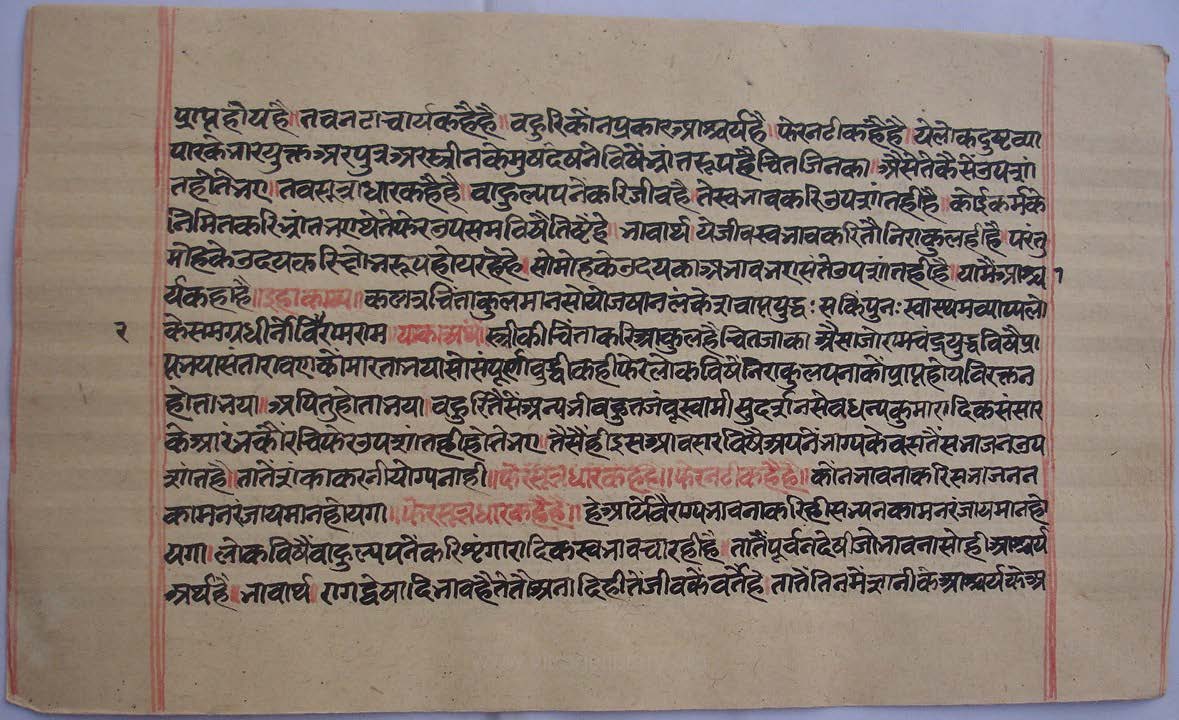 प्राप्त होय है ॥ तब नटाचार्य कहै है ॥ बहुरि कौंन प्रकार आश्चर्य है । फेर नटी कहै है । ये लोक दुष्ट व्या
पार के भार युक्त अर पुत्र अर स्त्रीन के मुष देषने विषैं भ्रांत रूप है चित जिनका ॥ अैसे ते कैसें उपशां
त होते भए ॥ तब सूत्राधार कहै है । बाहुल्य पनें करि जीव है ते स्वभाव करि उपशांत ही है । कोई कर्म के
निमित करि भ्रांत भए थे ते फेर उपसम विषै तिष्टे है । भावार्थ ये जीव स्वभाव करि तौ निराकुल ही है परंतु
मोह के उदय करि क्षोभ रूप होय रहे है । सो मोह के उदय का अभाव भए संतै उपशांत ही है । यामै आश्च १
र्य कहा है ॥ इहां काव्य । कलत्र चिंताकुल मानसो यो जघान लंकेश वाप्त युद्धः स किं पुनः स्वास्थमवाप्य लो
२ के समग्रधीर्नो विरराम राम याका अर्थ ॥ स्त्री की चिंता करि आकुल है चित जाका । अैसा जो रामचंद्र युद्ध विषै प्रा
प्त भया संता रावण कों मारता भया सो संपूर्ण बुद्धी कही फेर लोक विषैं निराकुल पना कों प्राप्त होय विरक्त न
होता भया ॥ अपि तु होता भया । बहुरि तैसें अन्य भी बहुत जंबूस्वामी सुदर्शन सेठ धन्यकुमारादिक संसार
के आरंभ कौं रचि फेर उपशांत ही होते भए ॥ तैसैं ही इस अवसर विषै अपनें भाग्य के वस तैं सभाजन उप
शांत है ॥ तातें शंका करनी योग्य नाही ॥ फेर सूत्रधार कहै है ॥ फेर नटी कहै है ॥ कौंन भावना करि सभाजनन
का मन रंजायमान होयगा । फेर सूत्रधार कहै है ॥ हे आर्ये वैराग्य भावना करि ही सभ्यन का मन रंजायमान हो
यगा । लोक विषैं बाहुल्य पनैं करि शृंगारादिक स्वभाव चार ही है । तातैं पूर्व न देषी जो भावना सो ही आश्चर्य
अर्थ है । भावार्थ राग द्वेषादि भाव है ते तौ अनादि ही तें जीव कें वर्तें है तातें तिनमें ज्ञानी के आश्चर्य के अ